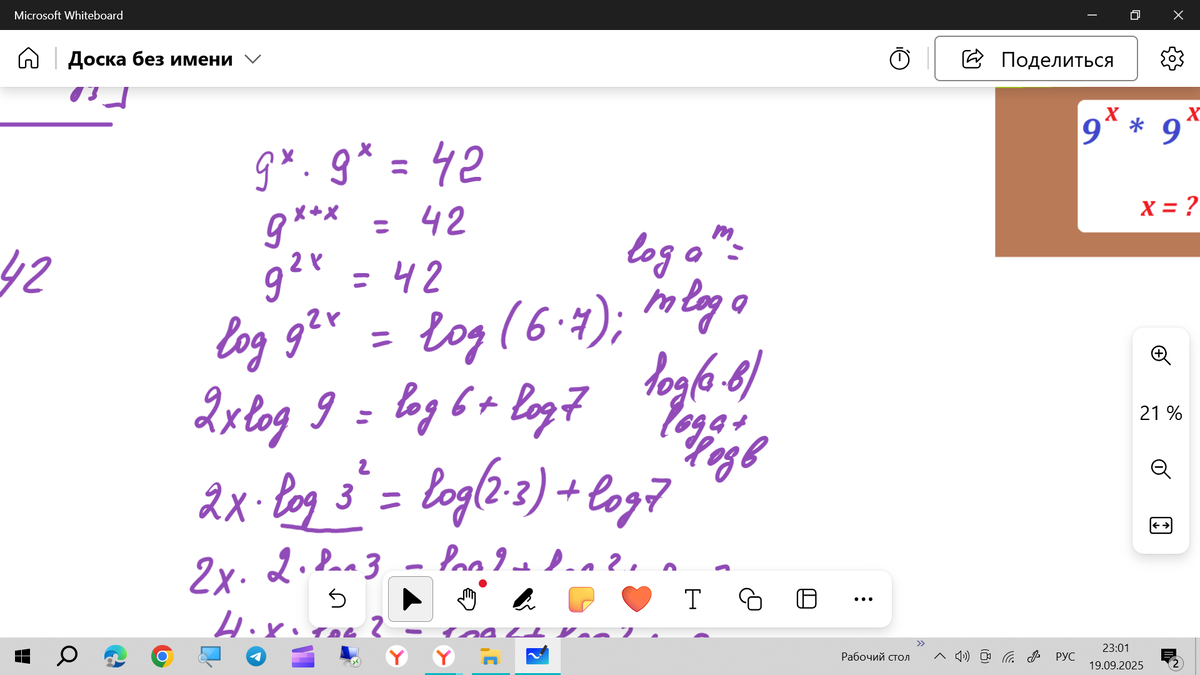 Microsoft Whiteboard
Доска без имени
Поделиться
9^x · 9^x = 42
9^{x+x} = 42
9^{2x} = 42
log 9^{2x} = log (6·7);
2x log 9 = log 6 + log 7
2x · log 3^2 = log(2·3) + log 7
2x · 2 · log 3 = log 2 +
4 · x ·
log a^m =
m log a
log(a·b)
log a +
log b
42
9^x * 9^x
x = ?
21 %
T
Рабочий стол
РУС
23:01
19.09.2025
2